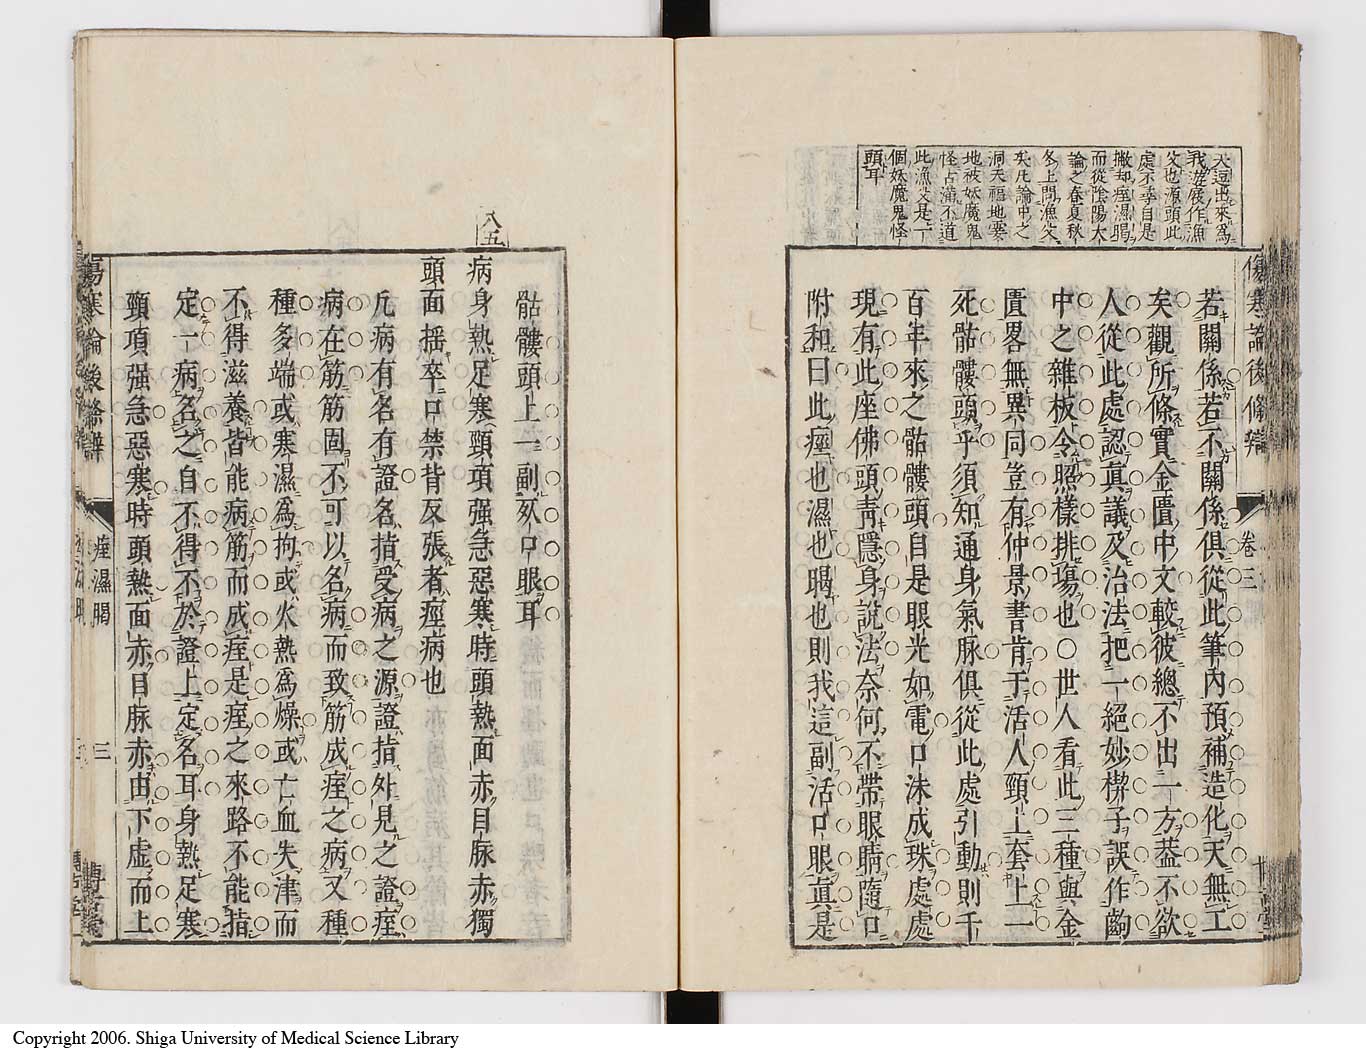 天逗出來爲
我遊展作漁
父也源頭此
處不尋自是
撇却痙濕暍
而從陰陽大
論之春夏秋
冬上問漁父
矣凡論中之
洞天福地寒
地被妖魔鬼
怪占滿不道
此漁父是一
個妖魔鬼怪
頭耳
傷寒論後條辯
卷三
若關係若不關係俱從此筆內預補造化天無工
矣觀所條實金匱中文較彼總不出一方葢不欲
人從此處認眞議及治法把一絕妙楔子誤作齣
中之雜板令照樣排塲也○世人看此三種與金
匱畧無異同豈有仲景書肯于活人頸上套上一
死骷髏頭乎須知通身氣脉俱從此處引動則千
百年來之骷髏頭自是眼光如電口沫成珠處處
現有此座佛頭靑隱身說法奈何不帶眼睛隨口
附和曰此痙也濕也暍也則我這副活口眼眞是
骷髏頭上一副死口眼耳
八五
病身熱足寒頸項强急惡寒時頭熱面赤目脉赤獨
頭面搖卒口禁背反張者痙病也
凡病有名有證名指受病之源證指外見之證痙
病在筋筋固不可以名病而致筋成痙之病又種
種多端或寒濕爲拘或火熱爲燥或亡血失津而
不得滋養皆能病筋而成痙是痙之來路不能指
定一病名之自不得不於證上定名耳身熱足寒
頸項强急惡寒時頭熱面赤目脉赤由下虛而上
傷寒論後條辯
痙濕暍
三
博古堂
Copyright 2006. Shiga University of Medical Science Library